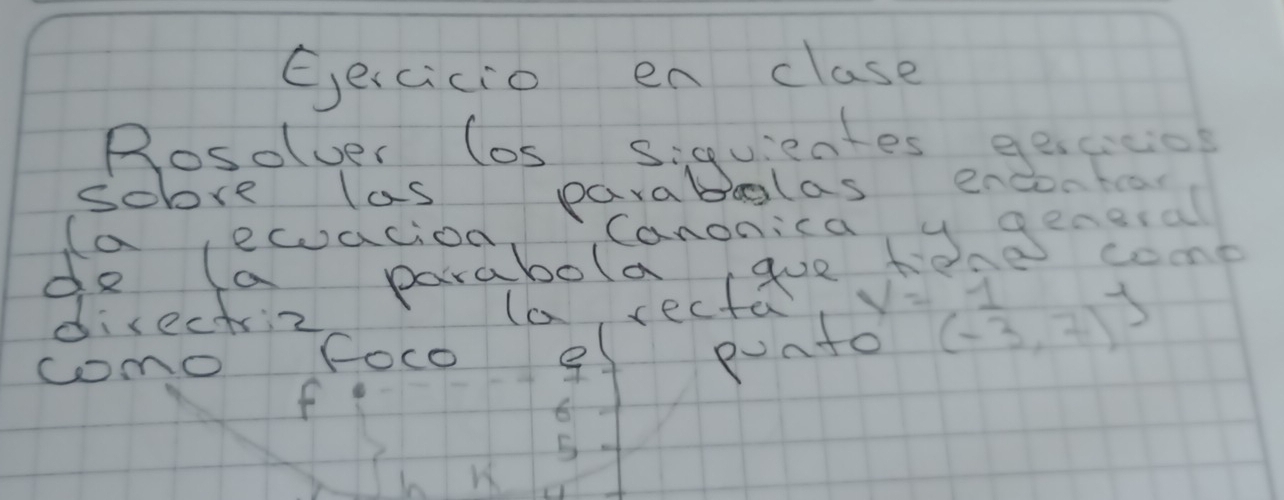 Ejercicio en clase
Rosolver los siguientes gercicios
sobre las parabolas encontrar
la ecuacion, Canonica y general
de la parabola que tiene como
directriz la recta y = 1 y
como foco el punto (-3, 7)
f 7
6
5
h k 4